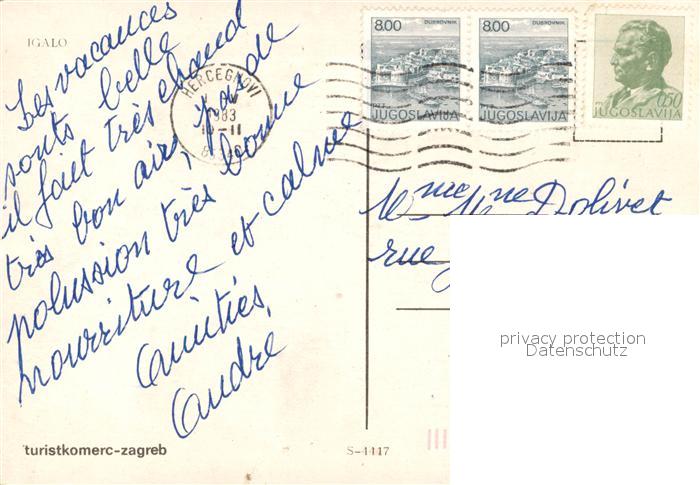 IGALO
Les vacances
sonts belle
il fait très chaud
très bon air, pas de
polussion très bonne
nourriture et calme
Amitiés,
Andre
HERCEGNOVI
1983
-11
8.00
DUBROVNIK
JUGOSLAVIJA
8.00
DUBROVNIK
JUGOSLAVIJA
0.50
JUGOSLAVIJA
Dolivet
rue
privacy protection
Datenschutz
turistkomerc-zagreb
S-4417